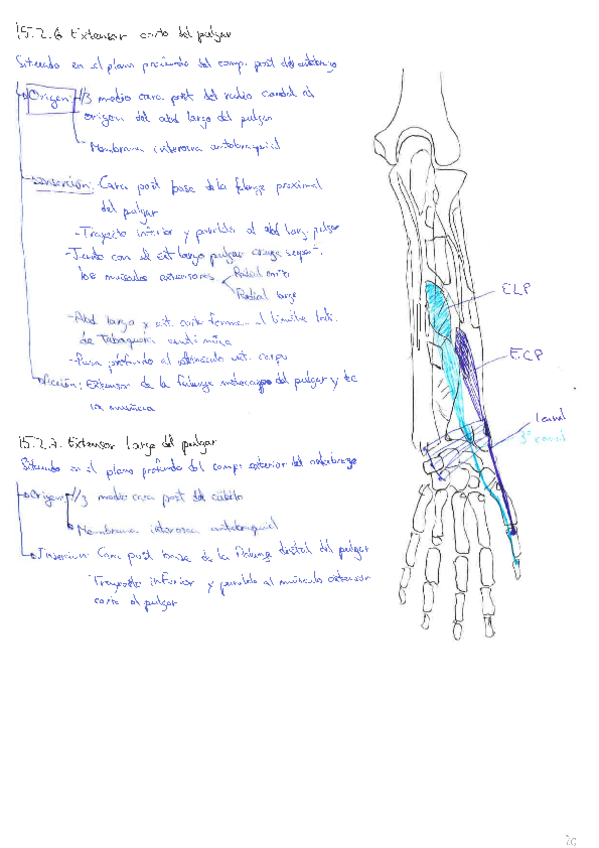 15.2.6 Extensor corto del pulgar
Situado en el plano profundo del comp. post del antebrazo
Origen: 1/3 medio cara post del radio caudal al
origen del abd largo del pulgar
Membrana interosea antebraquial
Inserción: Cara post base de la falange proximal
del pulgar
- Trayecto inferior y paralelo al abd larg. pulgar
- Junto con el ext largo pulgar cruza
los músculos extensores
Radial corto
Radial largo
- Abd largo y ext. corto forman el límite
de Tabaquera
- Pasa profundo al ext. carpo
Acción: Extensor de la falange del pulgar y de
la muñeca
15.2.7. Extensor largo del pulgar
Situado en el plano profundo del comp. exterior del antebrazo
Origen: 1/3 medio cara post del cúbito
Membrana interosea antebraquial
Inserción: Cara post base de la falange distal del pulgar
Trayecto inferior y paralelo al músculo extensor
corto del pulgar
ELP
ECP
1 canal
3º canal